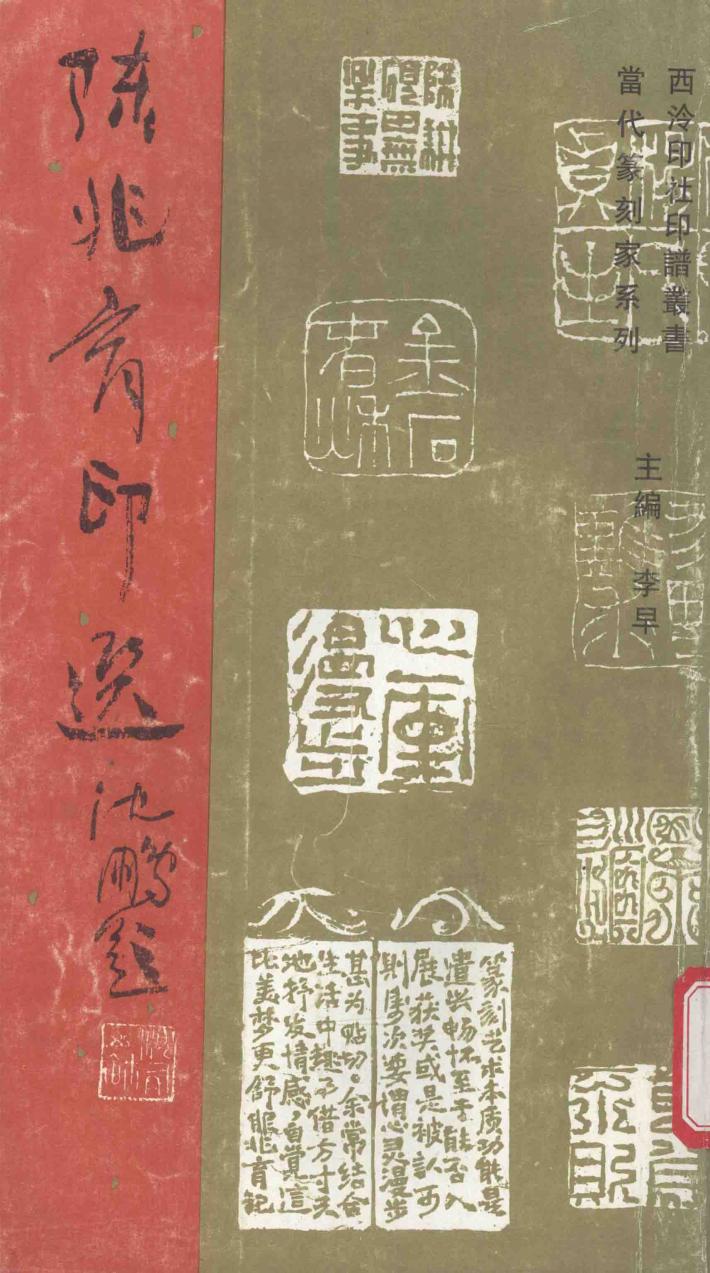 西泠印社印譜叢書
當代篆刻家系列
主編 李早
除耕
硯田無
樂事
心靈
漫步
篆刻艺术本质功能是
遣兴畅怀至于能否入
展获奖或是被认可
则属次要谓心灵漫步
甚为贴切。余常结合
生活中趣事借方寸天
地抒发情感，自觉这
比美梦更舒服兆育记
陈兆育印選
沈鹏题